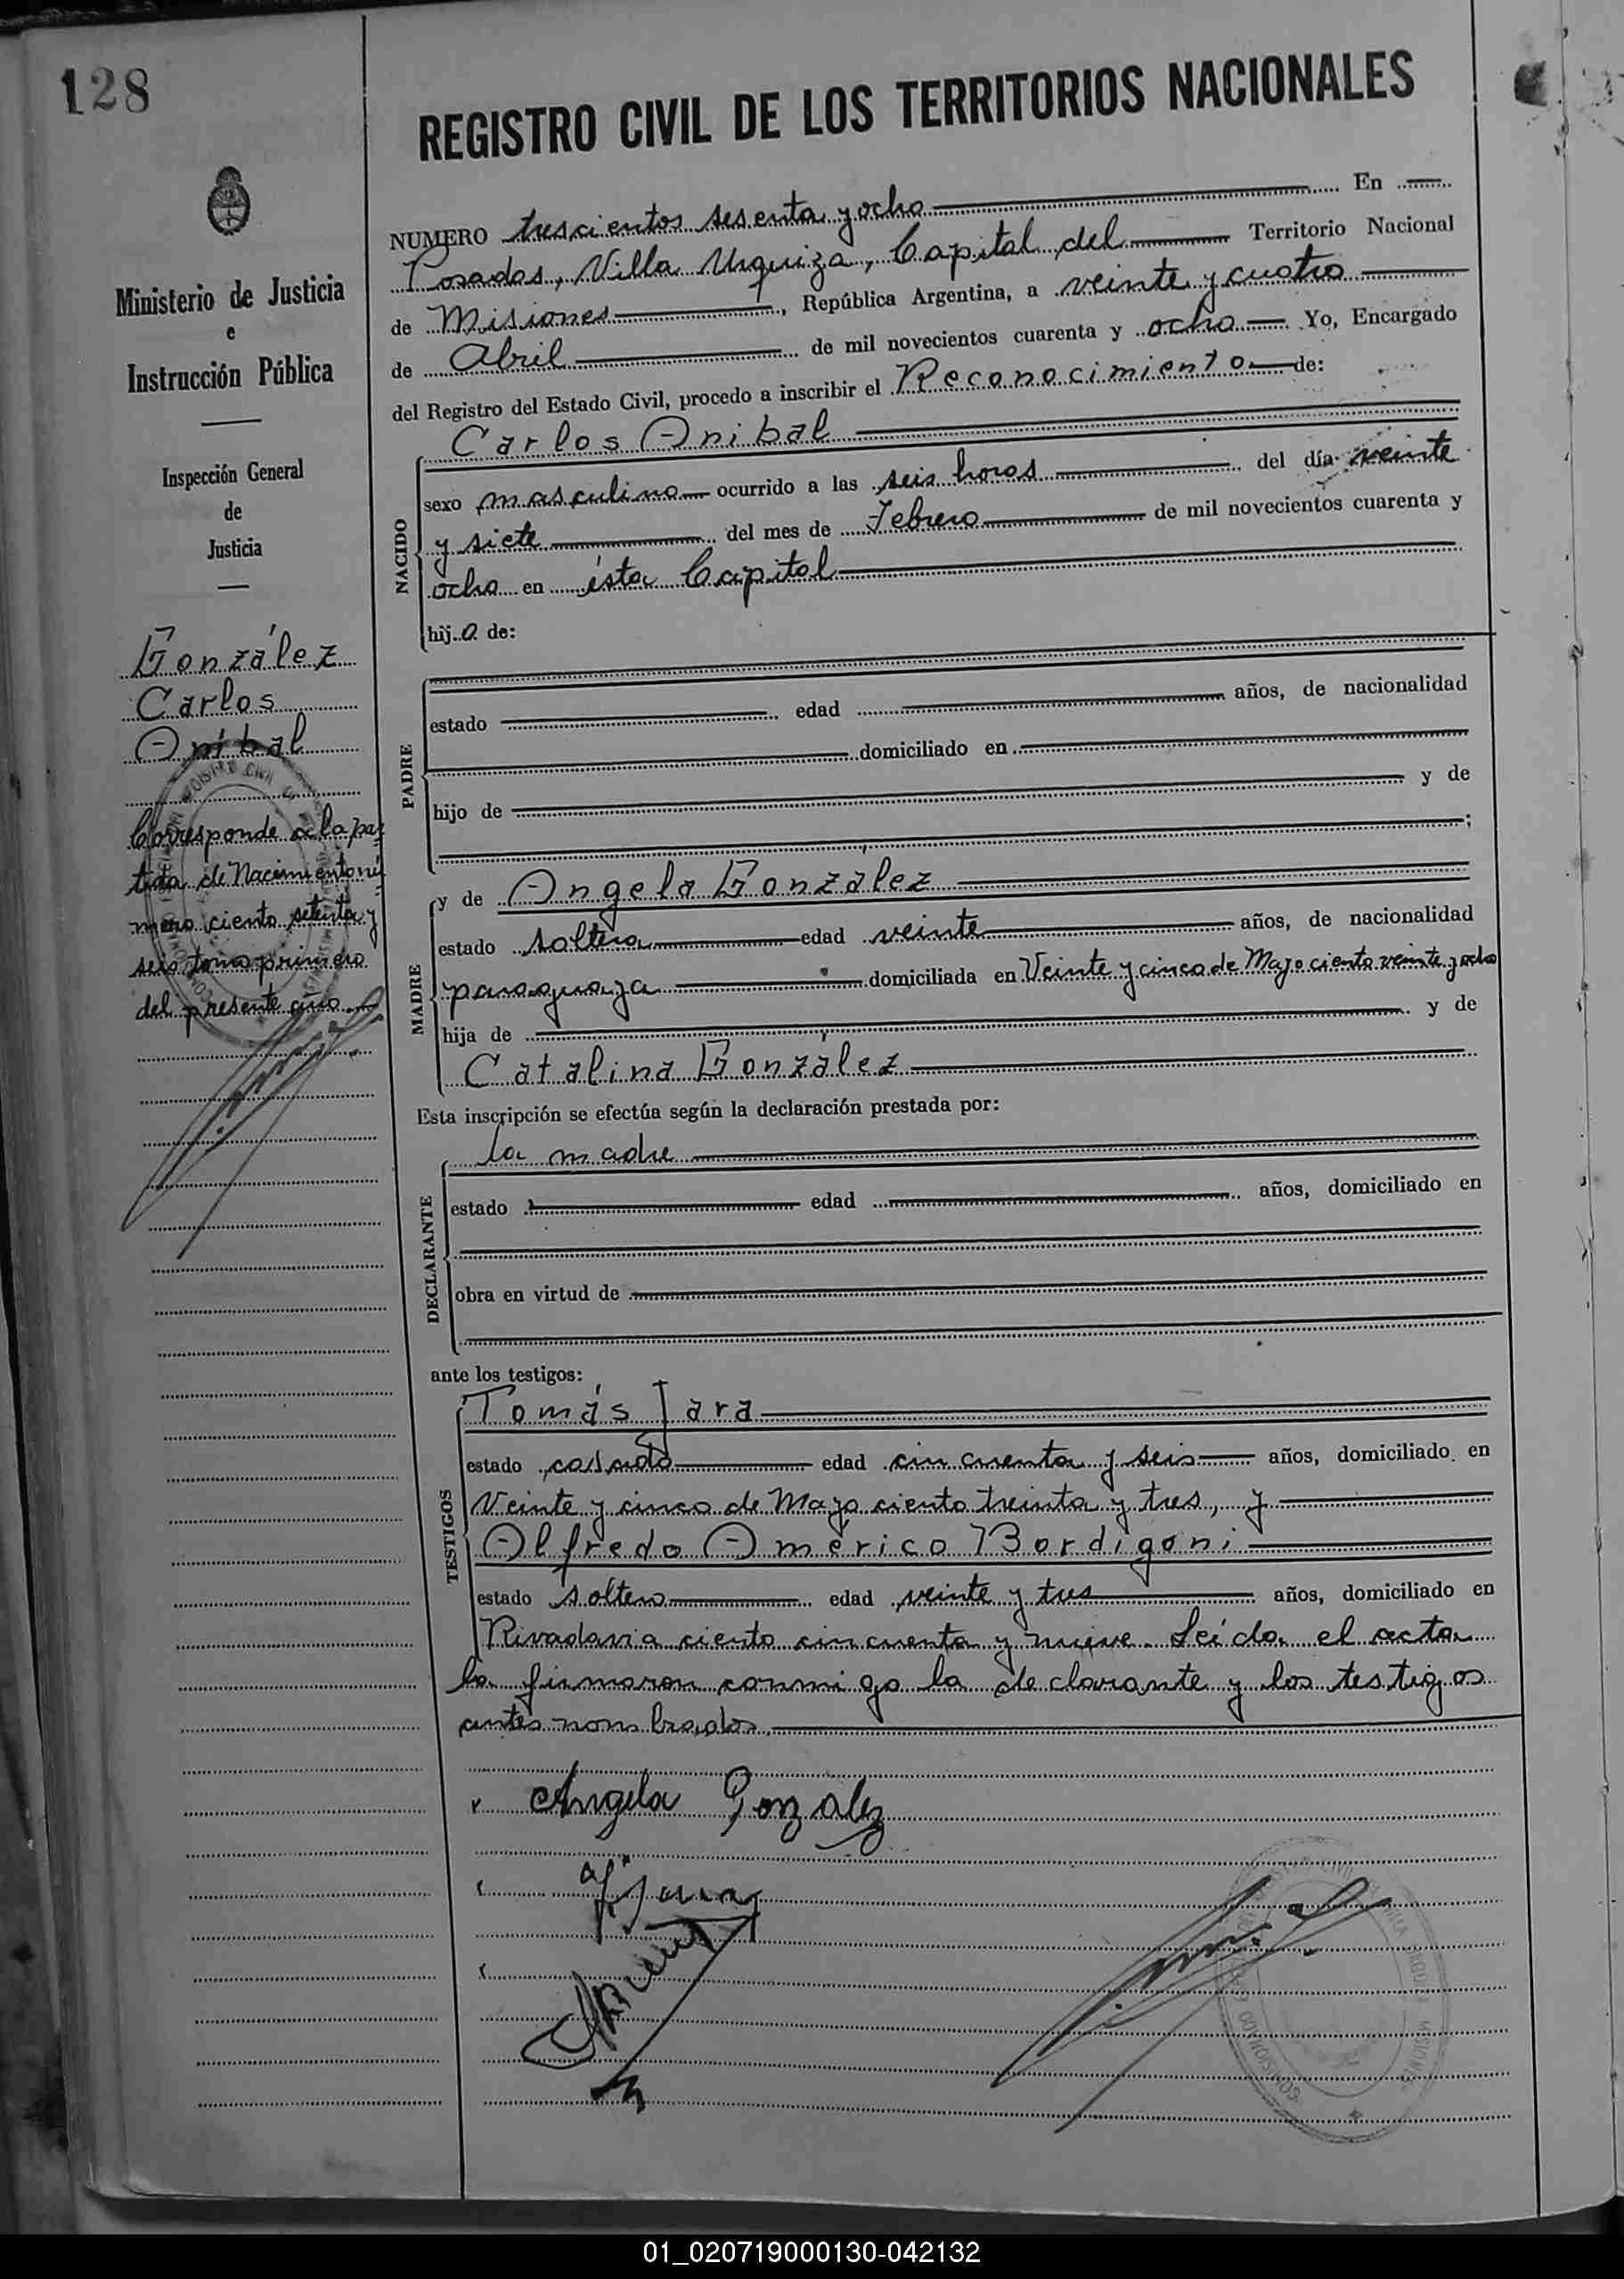 128
REGISTRO CIVIL DE LOS TERRITORIOS NACIONALES
Ministerio de Justicia
e
Instrucción Pública
Inspección General
de
Justicia
González
Carlos
Anibal
Corresponde a la par
tida de Nacimiento nú
mero ciento setenta y
seis tomo primero
del presente año.
NUMERO trescientos sesenta y ocho En
Posadas, Villa Urquiza, Capital del Territorio Nacional
de Misiones, República Argentina, a veinte y cuatro
de Abril de mil novecientos cuarenta y ocho Yo, Encargado
del Registro del Estado Civil, procedo a inscribir el Reconocimiento de:
NACIDO
Carlos Anibal
sexo masculino ocurrido a las seis horas del día veinte
y siete del mes de Febrero de mil novecientos cuarenta y
ocho en ésta Capital
hijo de:
PADRE
estado edad años, de nacionalidad
domiciliado en
hijo de y de
;
MADRE
y de Angela González
estado soltera edad veinte años, de nacionalidad
paraguaya domiciliada en Veinte y cinco de Mayo ciento veinte y ocho
hija de y de
Catalina González
Esta inscripción se efectúa según la declaración prestada por:
DECLARANTE
la madre
estado edad años, domiciliado en
obra en virtud de
ante los testigos:
TESTIGOS
Tomás Jara
estado casado edad cincuenta y seis años, domiciliado en
Veinte y cinco de Mayo ciento treinta y tres, y
Alfredo Américo Bordigoni
estado soltero edad veinte y tres años, domiciliado en
Rivadavia ciento cincuenta y nueve. Leída el acta
la firmaron conmigo la declarante y los testigos
antes nombrados.
Angela Gonzalez
01_020719000130-042132